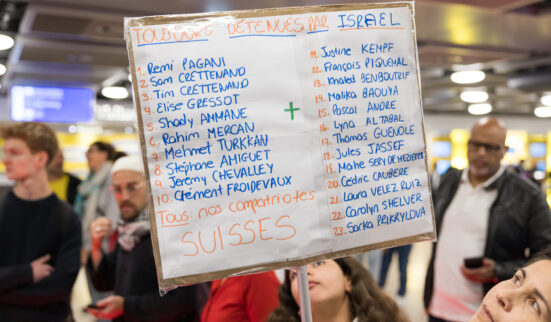 TOUJOURS DÉTENUES PAR ISRAEL
1. Remi PAGANI
2. Sam CRETTENAND
3. Tim CRETTENAND
4. Elise GRESSOT
5. Shady AMMANE
6. Rahim MERCAN
7. Mehmet TURKKAN
8. Stéphane AMIGUET
9. Jeremy CHEVALLEY
10. Clément FROIDEVAUX
Tous: nos compatriotes
SUISSES
11. Justine KEMPF
12. François PIQUEHAL
13. Khaled BENBOUTZIF
14. Malika BAOUYA
15. Pascal ANDRE
16. Lyna AL TABAL
17. Thomas GUENOLE
18. Jules JASSEF
19. Mahe SERY DE HEZBERT
20. Cédric CAUBERE
21. Laura VELEZ RUIZ
22. Carolyn SHELVER
23. Sarka PRIKRYLOVA